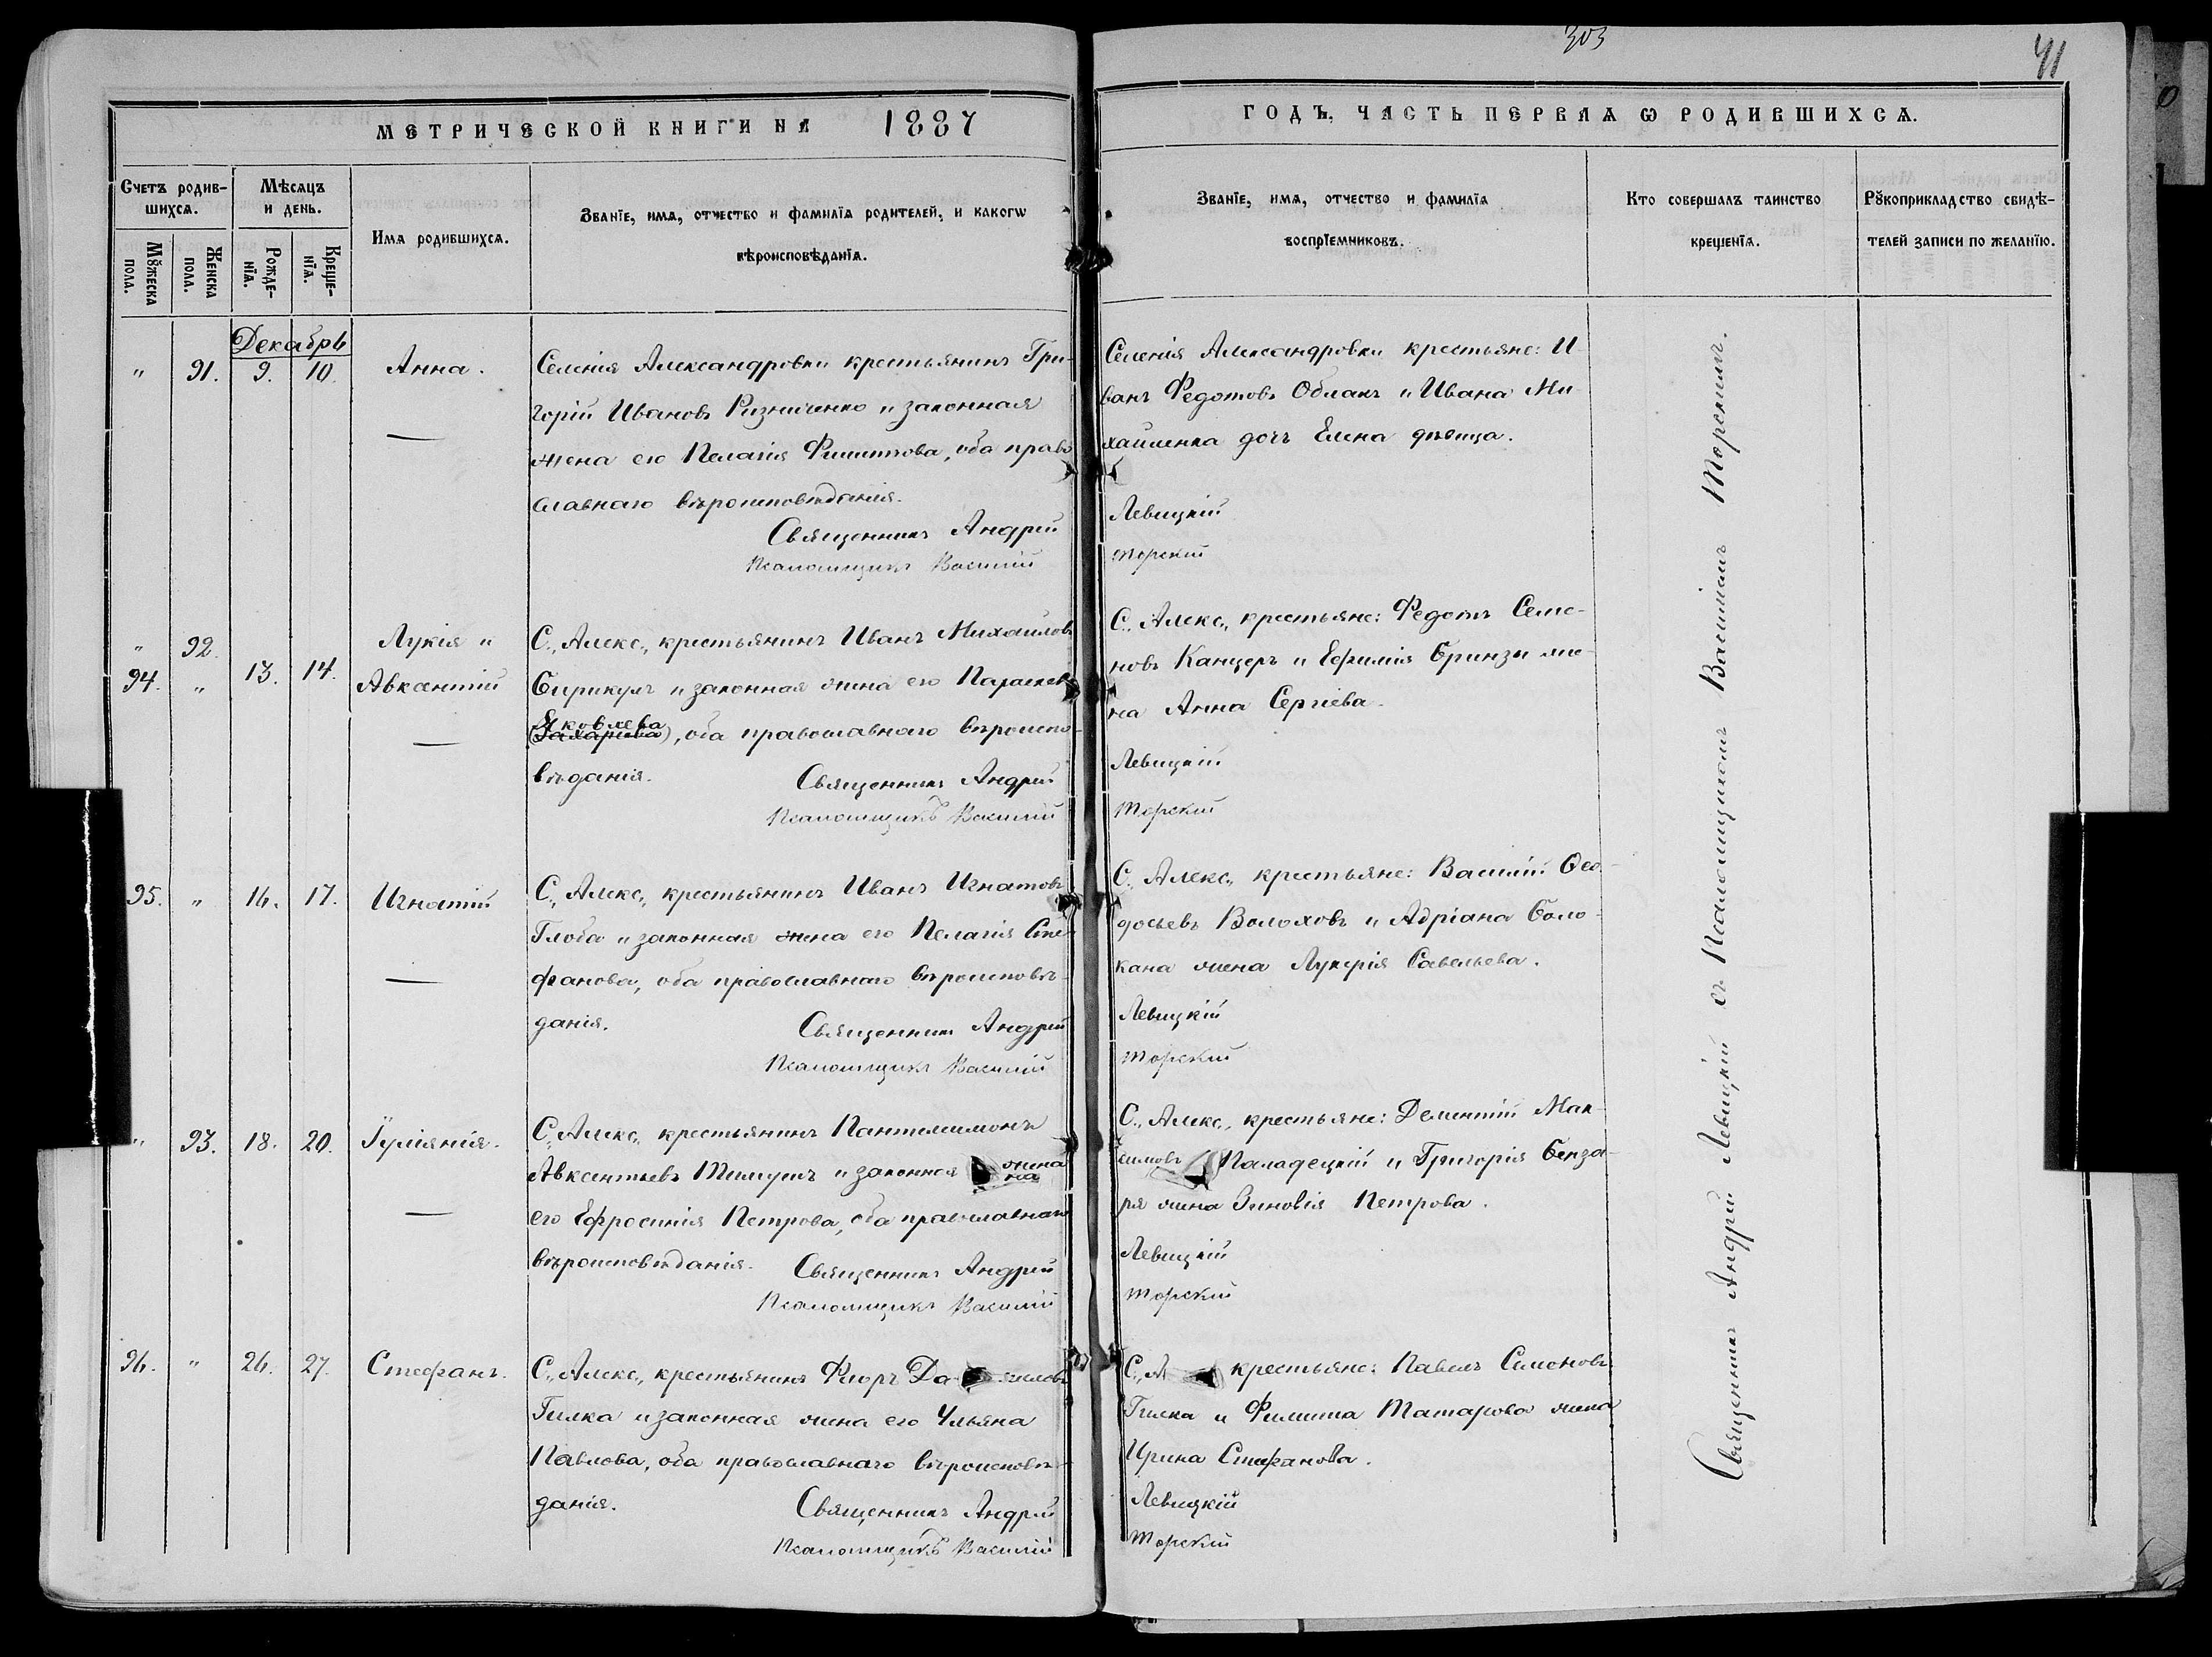 303
41
МЕТРИЧЕСКОЙ КНИГИ НА 1887
ГОДЪ, ЧАСТЬ ПЕРВАЯ Ѡ РОДИВШИХСЯ.
Счетъ родив-
шихся.
Мѣсяцъ
и день.
Имя родившихся.
Званїе, имя, отчество и фамилїя родителей, и какогѡ
вѣроисповѣданїя.
Мꙋжеска
пола.
Женска
пола.
Рожде-
нїя.
Креще-
нїя.
Званїе, имя, отчество и фамилїя
воспрїемниковъ.
Кто совершалъ таинство
крещенїя.
Рꙋкоприкладство свидѣ-
телей записи по желанїю.
Декабрь
" 91. 9. 10. Анна.
Селенія Александровки крестьянинъ Гри-
горій Ивановъ Ризниченко и законная
жена его Пелагія Филиппова, оба право
славнаго вѣроисповѣданія.
Священникъ Андрей
Псаломщикъ Василій
Селенія Александровки крестьяне: И
ванъ Федотовъ Облакъ и Ивана Ми
хайленка дочь Елена дѣвица.
Левицкій
Торскій
" 92. Лукія и
94. " 13. 14. Авксентій
С., Алекс., крестьянинъ Иванъ Михайловъ
Бирикулъ и законная жена его Параскев
Яковлева
(Захаріева), оба православнаго вѣроиспо-
вѣданія.
Священникъ Андрей
Псаломщикъ Василій
С., Алекс., крестьяне: Федотъ Семе-
новъ Канцеръ и Ефимія Бринзы же-
на Анна Сергіева.
Левицкій
Торскій
95. " 16. 17. Игнатій
С., Алекс., крестьянинъ Иванъ Игнатовъ
Глоба и законная жена его Пелагія Сте-
фанова, оба православнаго вѣроисповѣ-
данія.
Священникъ Андрей
Псаломщикъ Василій
С., Алекс., крестьяне: Василій Ѳео-
досьевъ Волоховъ и Адріана Боло-
кана жена Лукерія Савельева.
Левицкій
Торскій
" 93. 18. 20. Іуліянія.
С., Алекс., крестьянинъ Пантелимонъ
Авксентьевъ и законная жена
на
его Ефросинія Петрова, оба православнаго
вѣроисповѣданія.
Священникъ Андрей
Псаломщикъ Василій
С., Алекс., крестьяне: Дементій Мак-
симовъ Паладецкій и Григорія Бенза-
ря жена Зиновія Петрова.
Левицкій
Торскій
96. " 26. 27. Стефанъ.
С., Алекс., крестьянинъ Флоръ
Гилка и законная жена его Ульяна
Павлова, оба православнаго вѣроисповѣ-
данія.
Священникъ Андрей
Псаломщикъ Василій
С., А крестьяне: Павелъ Семеновъ
Гилка и Филиппа Татарова жена
Ирина Стефанова.
Левицкій
Торскій
Священникъ Андрей Левицкій съ Псаломщикомъ Василіемъ Торскимъ.